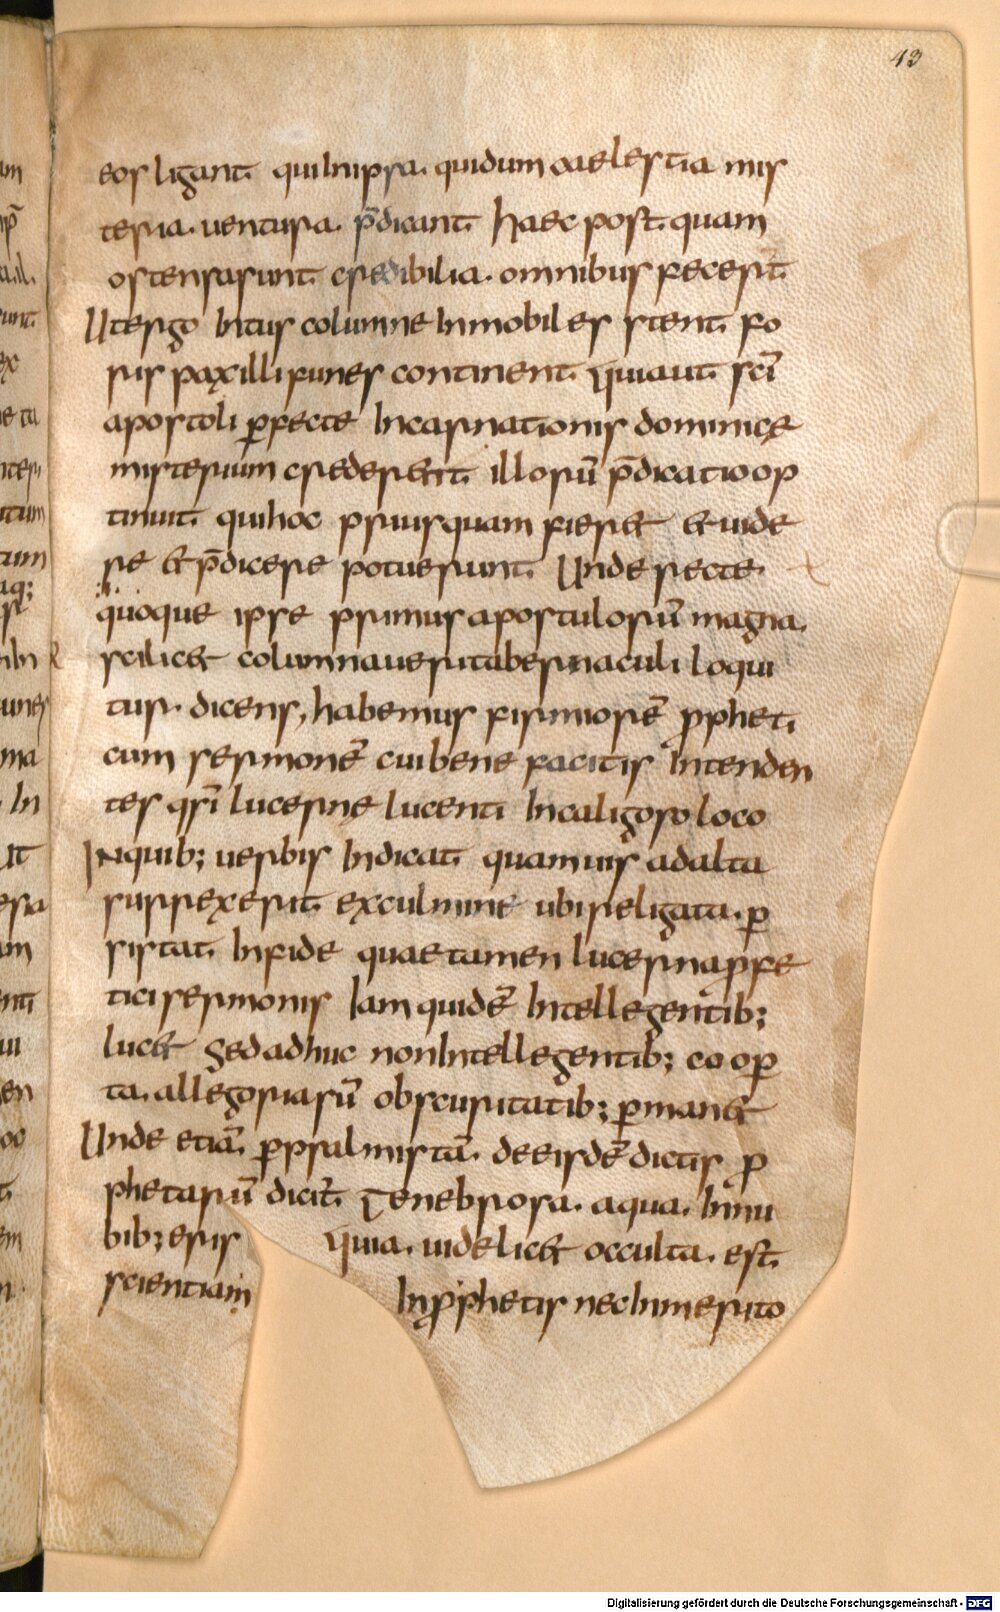 43
eos ligant. qui inipsa. quidum caelestia mis
teria. uentura. p̄dicant. haec post quam
ostensa sunt credibilia. omnibus fecerit.
Ut ergo intus columne inmobiles stent. fo
ris paxilli funes continent. Quia ut sc̄i
apostoli ꝑfecte incarnationis dominice
misterium crederent. illorū p̄dicatio op
tinuit. qui hoc priusquam fier& & uide
re & p̄dicere potuerunt. Unde recte.
quoque ipse primus apostulorū magna.
scilic& columna ueri tabernaculi loqui
tur. dicens, habemus firmiorē ꝓpheti
cum sermonē cui bene facitis intenden
tes qs̄i lucerne lucenti in caligoso loco
In quib; uerbis indicat. quamuis ad alta
surrexerit. ex culmine ubi religata. ꝑ
sistat. in fide quae tamen lucerna ꝓfe
tici sermonis iam quidē intellegentib;
luc& sed adhuc non intellegentib; co oꝑ
ta. allegoriarū obscuritatib; ꝑman&
Unde etiā. ꝑ psalmistā. de eisdē dictis ꝓ
phetarū dicit̄. Tenebrosa. aqua. in nu
bib; eris Quia. uidelic& occulta. est.
scientiam in ꝓphetis nec inmerito
Digitalisierung gefördert durch die Deutsche Forschungsgemeinschaft - DFG